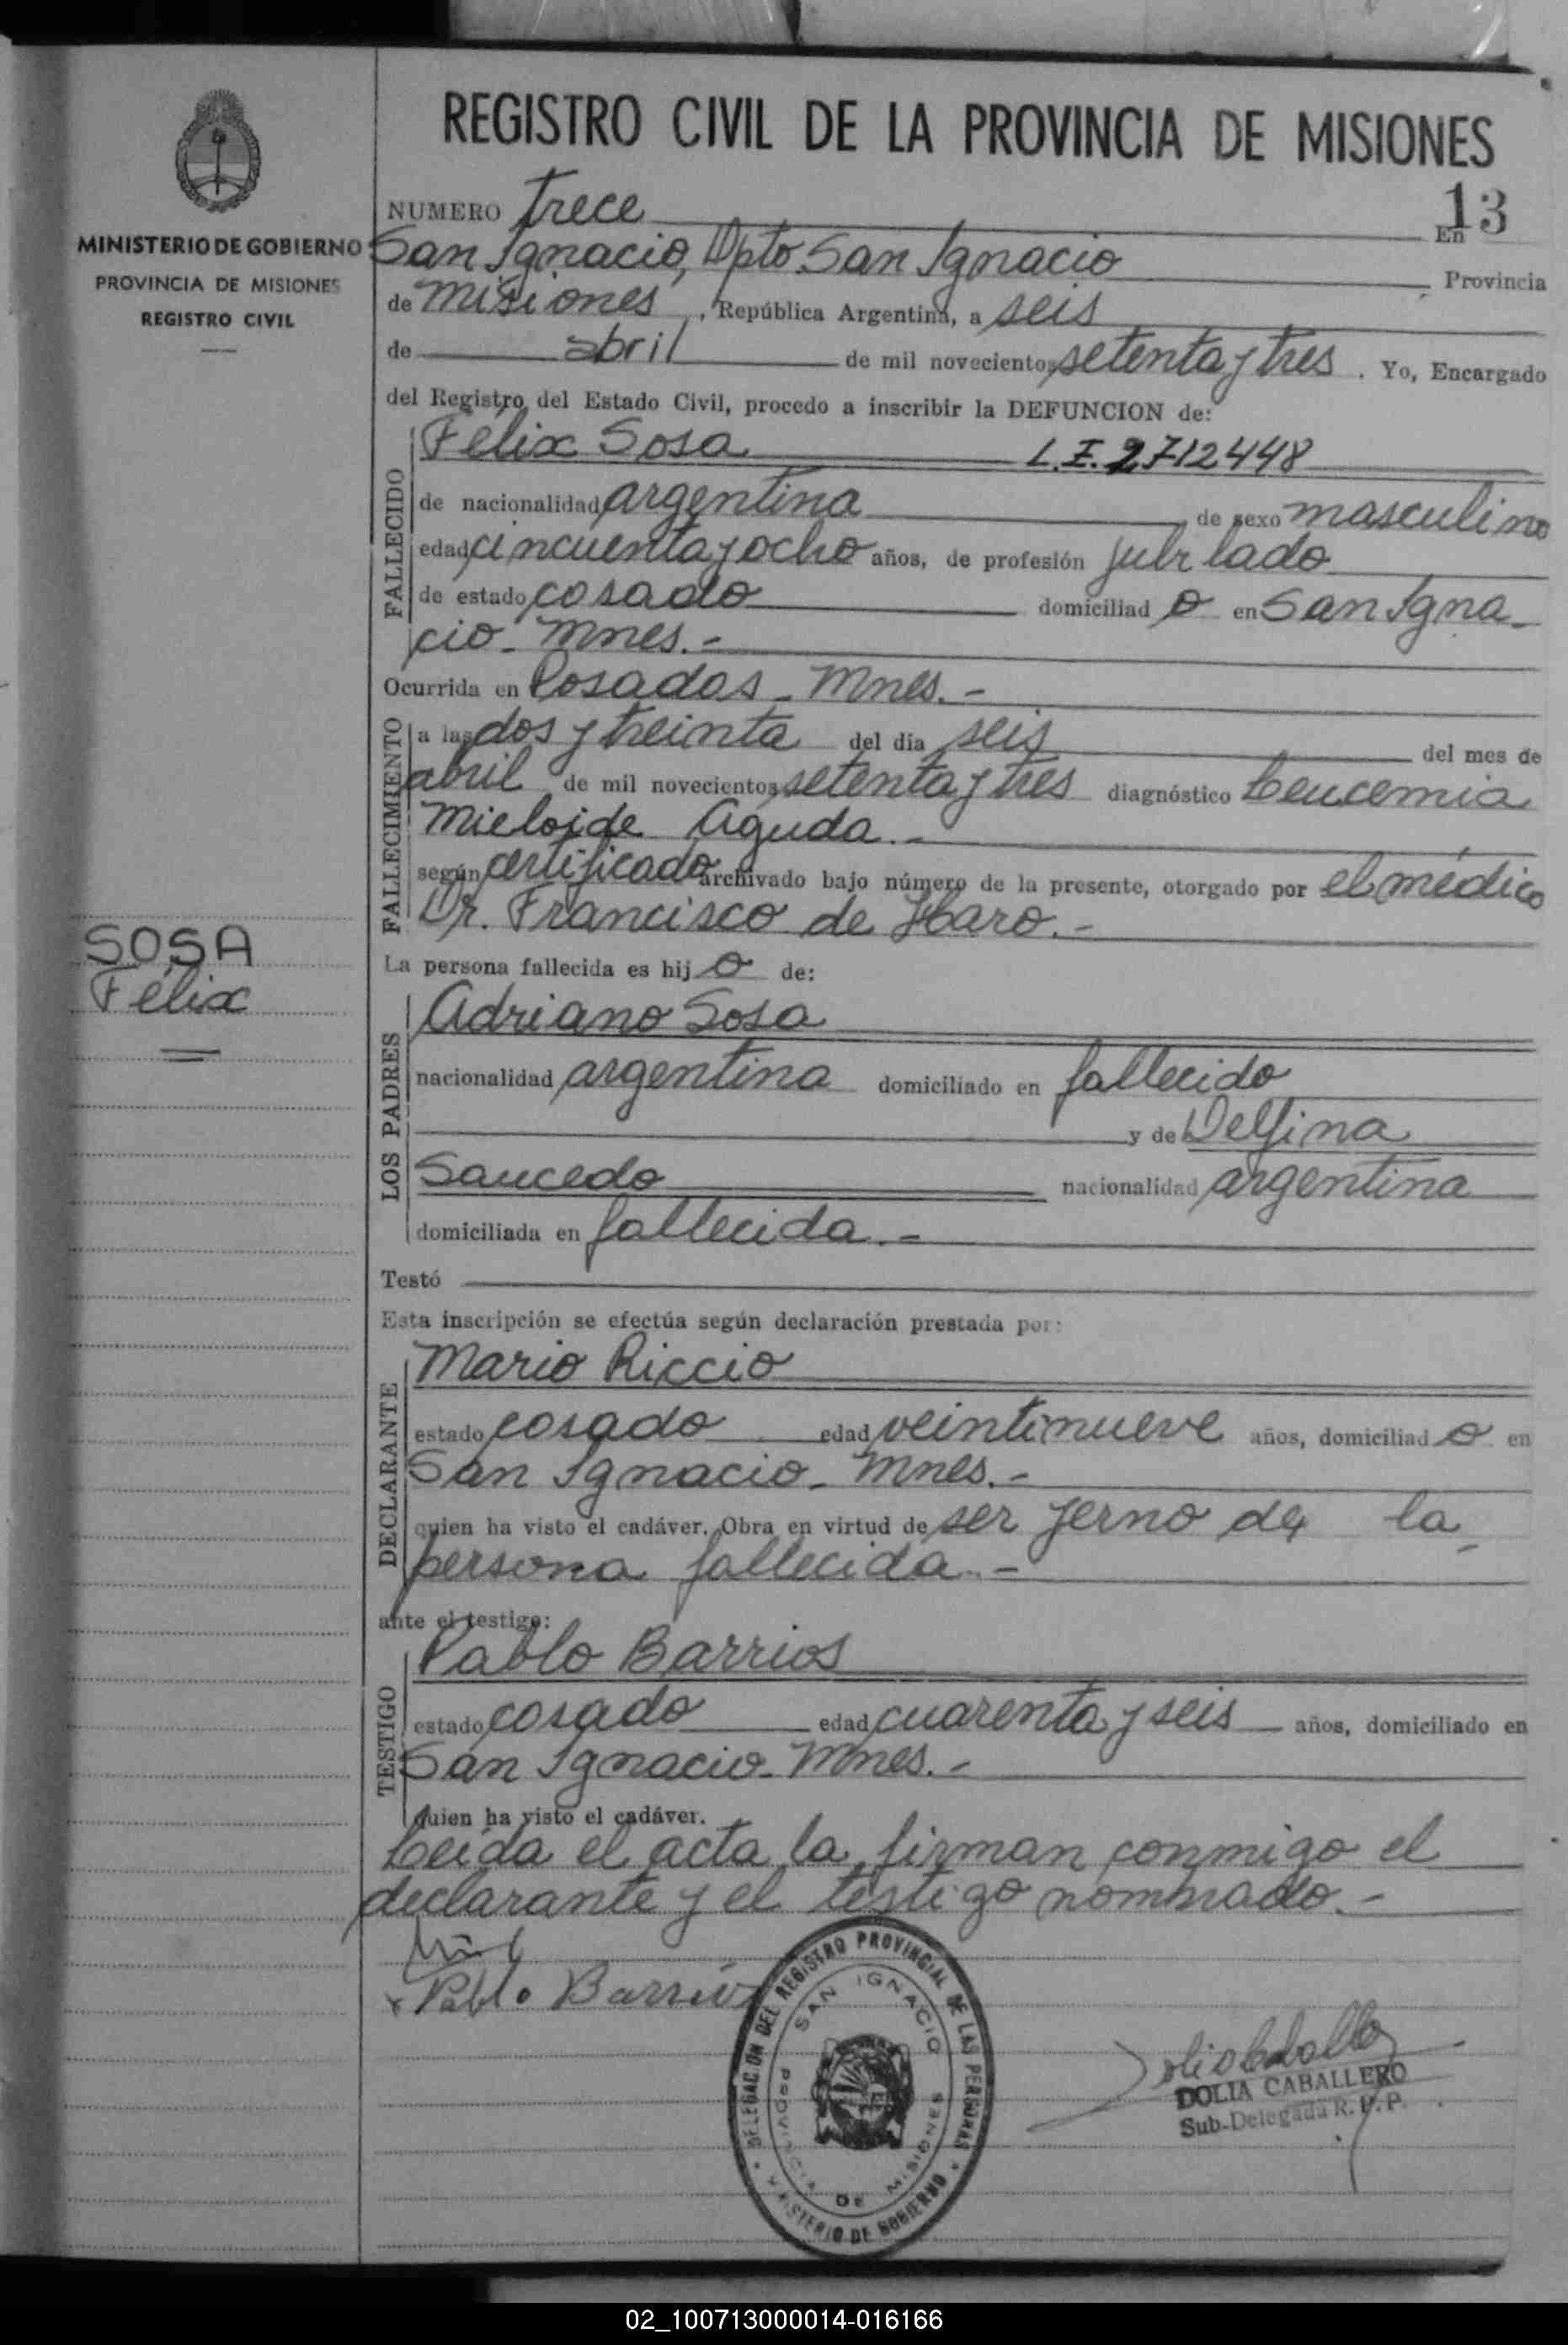 REGISTRO CIVIL DE LA PROVINCIA DE MISIONES
MINISTERIO DE GOBIERNO
PROVINCIA DE MISIONES
REGISTRO CIVIL
NUMERO trece 13
En
San Ignacio, Dpto San Ignacio Provincia
de Misiones, República Argentina, a seis
de abril de mil novecientos setenta y tres. Yo, Encargado
del Registro del Estado Civil, procedo a inscribir la DEFUNCION de:
FALLECIDO
Félix Sosa L.E. 2712448
de nacionalidad argentina de sexo masculino
edad cincuenta y ocho años, de profesión jubilado
de estado casado domiciliado en San Igna-
cio - Mnes.-
Ocurrida en Posadas - Mnes.-
FALLECIMIENTO
a las dos y treinta del día seis del mes de
abril de mil novecientos setenta y tres diagnóstico Leucemia
Mieloide Aguda.-
según certificado archivado bajo número de la presente, otorgado por el médico
Dr. Francisco de Haro.-
SOSA
Félix
La persona fallecida es hijo de:
LOS PADRES
Adriano Sosa
nacionalidad argentina domiciliado en fallecido
y de Delfina
Saucedo nacionalidad argentina
domiciliada en fallecida.-
Testó
Esta inscripción se efectúa según declaración prestada por:
DECLARANTE
Mario Riccio
estado casado edad veintinueve años, domiciliado en
San Ignacio - Mnes.-
quien ha visto el cadáver. Obra en virtud de ser yerno de la
persona fallecida.-
ante el testigo:
TESTIGO
Pablo Barrios
estado casado edad cuarenta y seis años, domiciliado en
San Ignacio - Mnes.-
quien ha visto el cadáver.
Leída el acta la firman conmigo el
declarante y el testigo nombrado.-
x Pablo Barrios
DELEGACION DEL REGISTRO PROVINCIAL DE LAS PERSONAS
SAN IGNACIO
PROVINCIA DE MISIONES
MINISTERIO DE GOBIERNO
DOLIA CABALLERO
Sub-Delegada R.P.P.
02_100713000014-016166